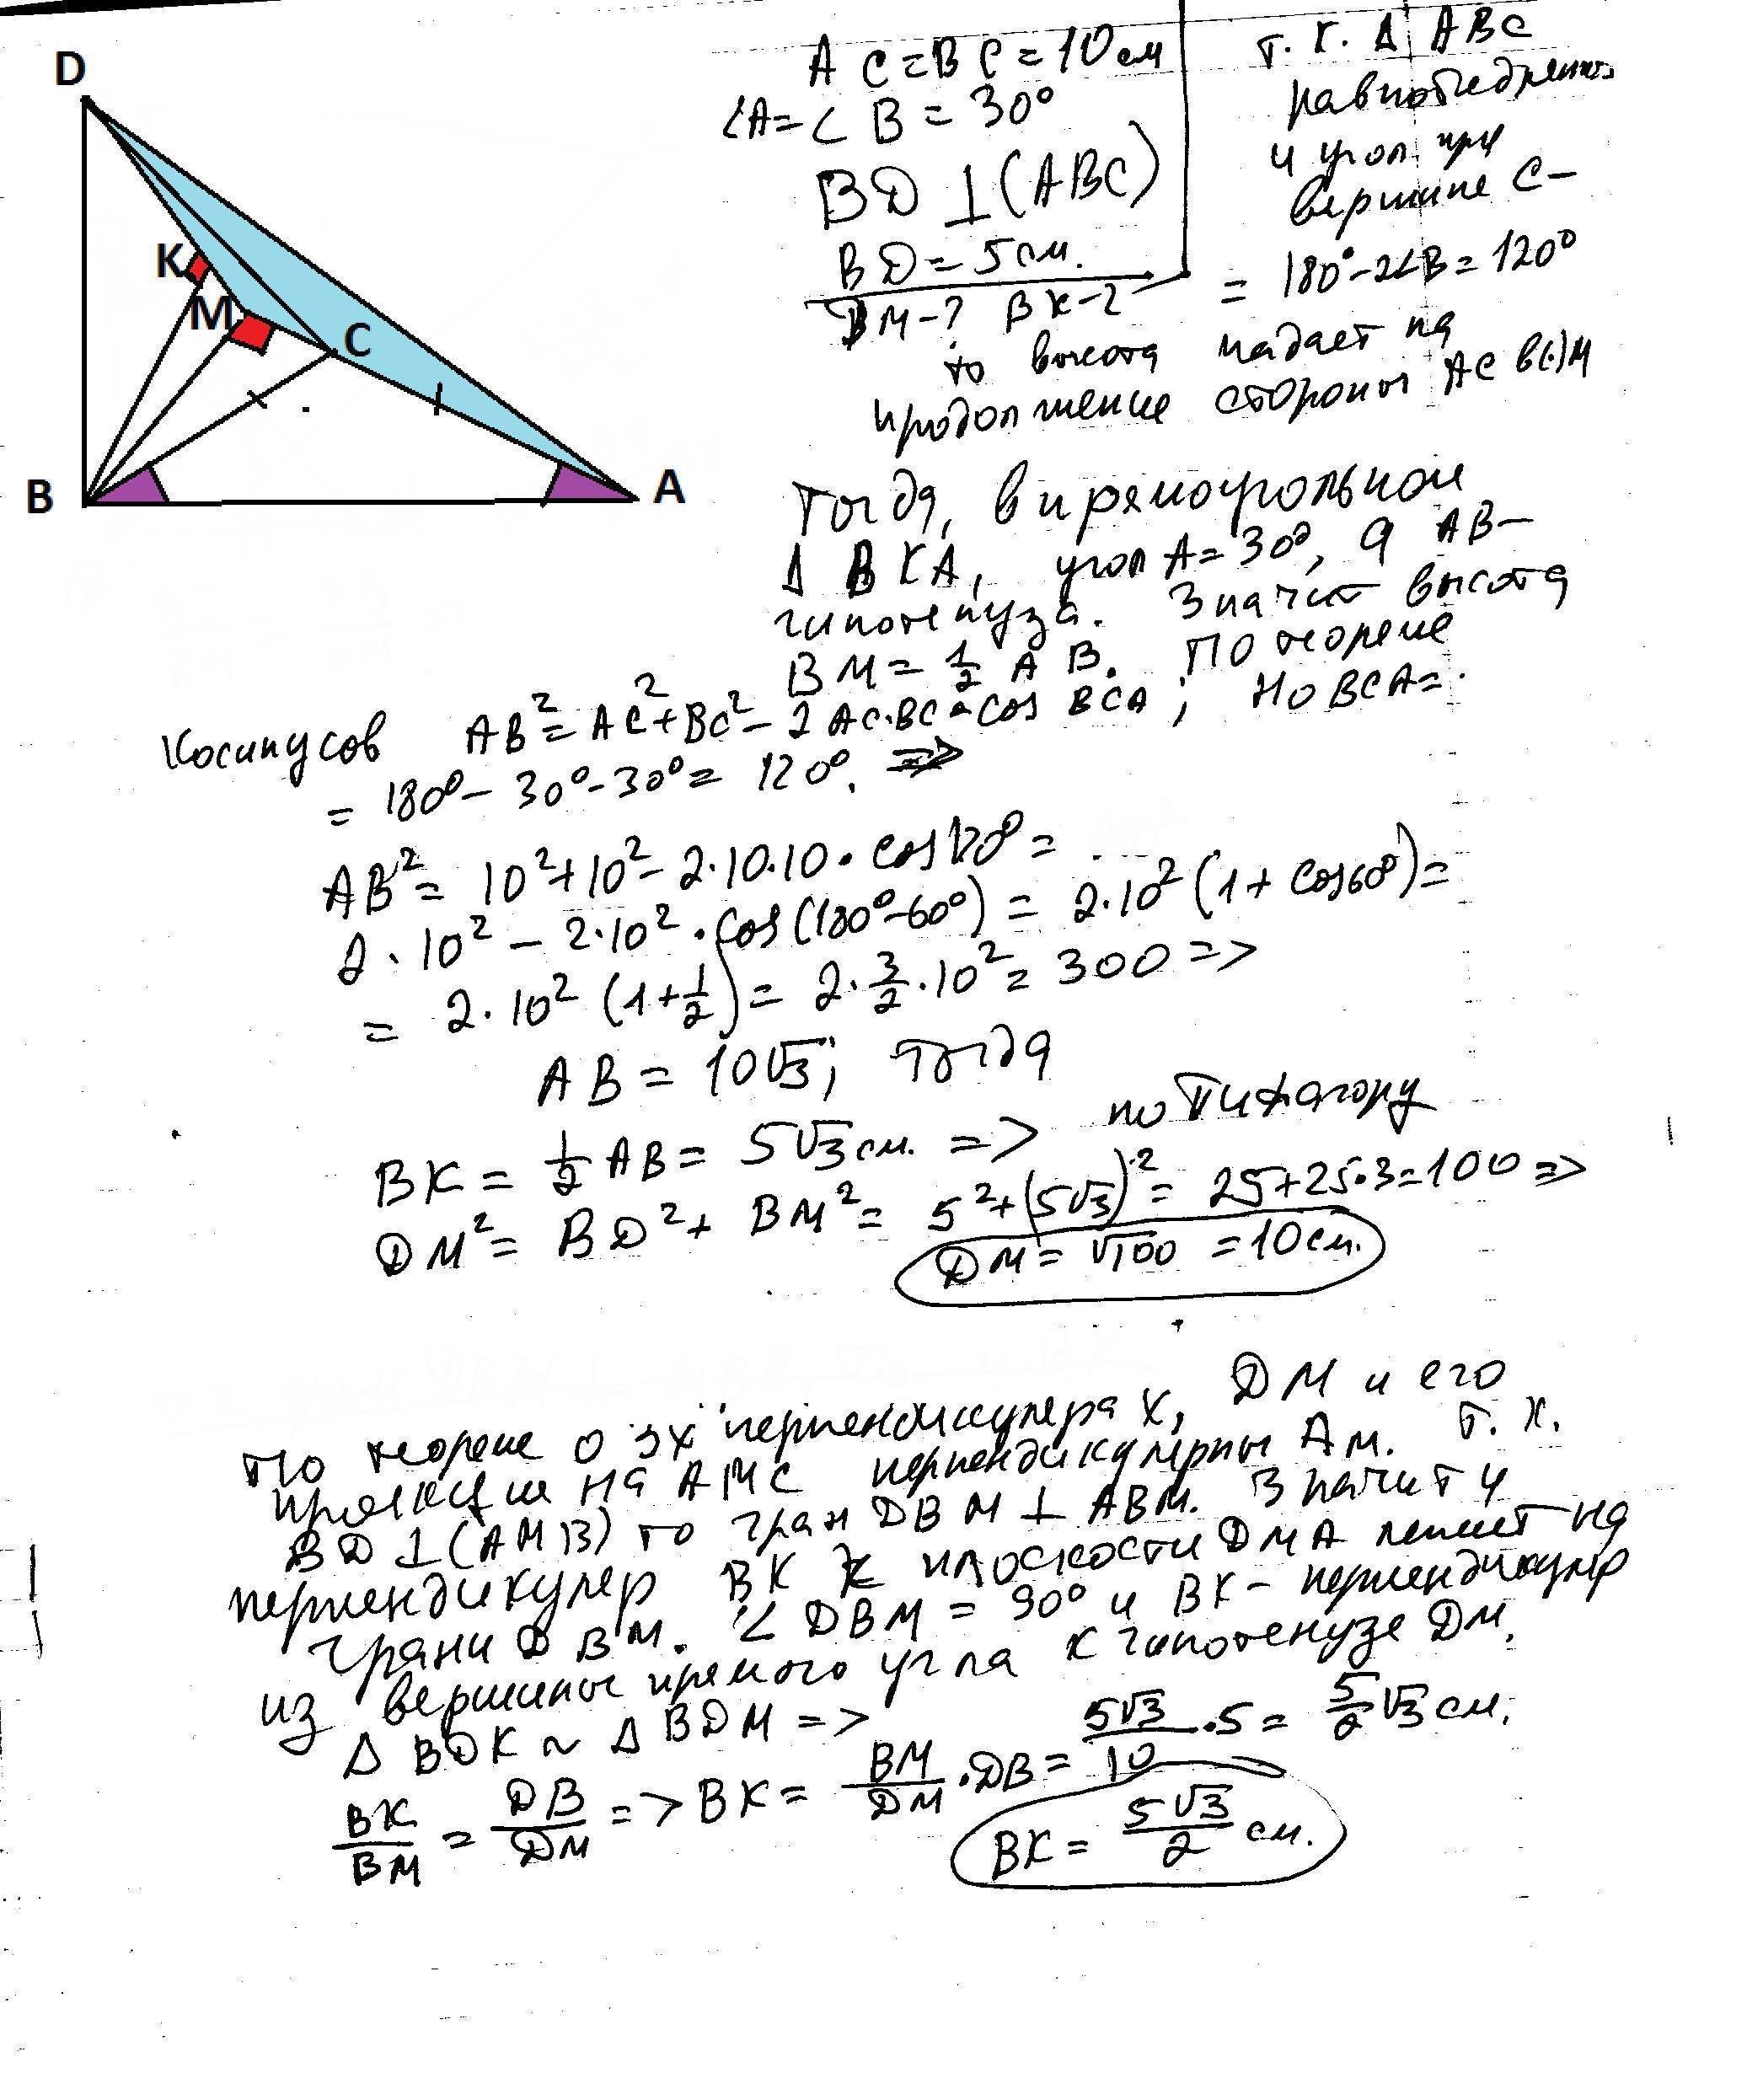 D
K
M
C
B
A
AC=BC=10см
∠A=∠B=30°
BD⊥(ABC)
BD=5см.
DM-? BK-?
т.к. Δ ABC
равнобедренный
и угол при
вершине C-
= 180°-2∠B=120°
то высота падает на
продолжение стороны AC в(·)M
Тогда, в прямоугольном
Δ BKA, угол A=30°, а AB-
гипотенуза. Значит высота
BM=1/2 AB. По теореме
косинусов AB²=AC²+BC²-2AC·BC·cos BCA; но BCA=
= 180°-30°-30°=120°. =>
AB²=10²+10²-2·10·10·cos120°=
2·10²-2·10²·cos(180°-60°)=2·10²(1+cos60°)=
= 2·10²(1+1/2)=2·3/2·10²=300=>
AB=10√3; тогда
BK=1/2AB=5√3см. => по Пифагору
DM²=BD²+BM²=5²+(5√3)²=25+25·3=100=>
DM=√100=10см.
По теореме о 3х перпендикулярах, DM и его
проекция на AMC перпендикулярны AM. Т.к.
BD⊥(AMB) то грань DBM⊥ABM. Значит и
перпендикуляр BK к плоскости DMA лежит на
грани DBM. ∠DBM=90° и BK- перпендикуляр
из вершины прямого угла к гипотенузе DM.
Δ BDK ~ Δ BDM =>
BK/BM=DB/DM=>BK=BM/DM·DB=5√3/10·5=5/2√3см.
BK=5√3/2 см.